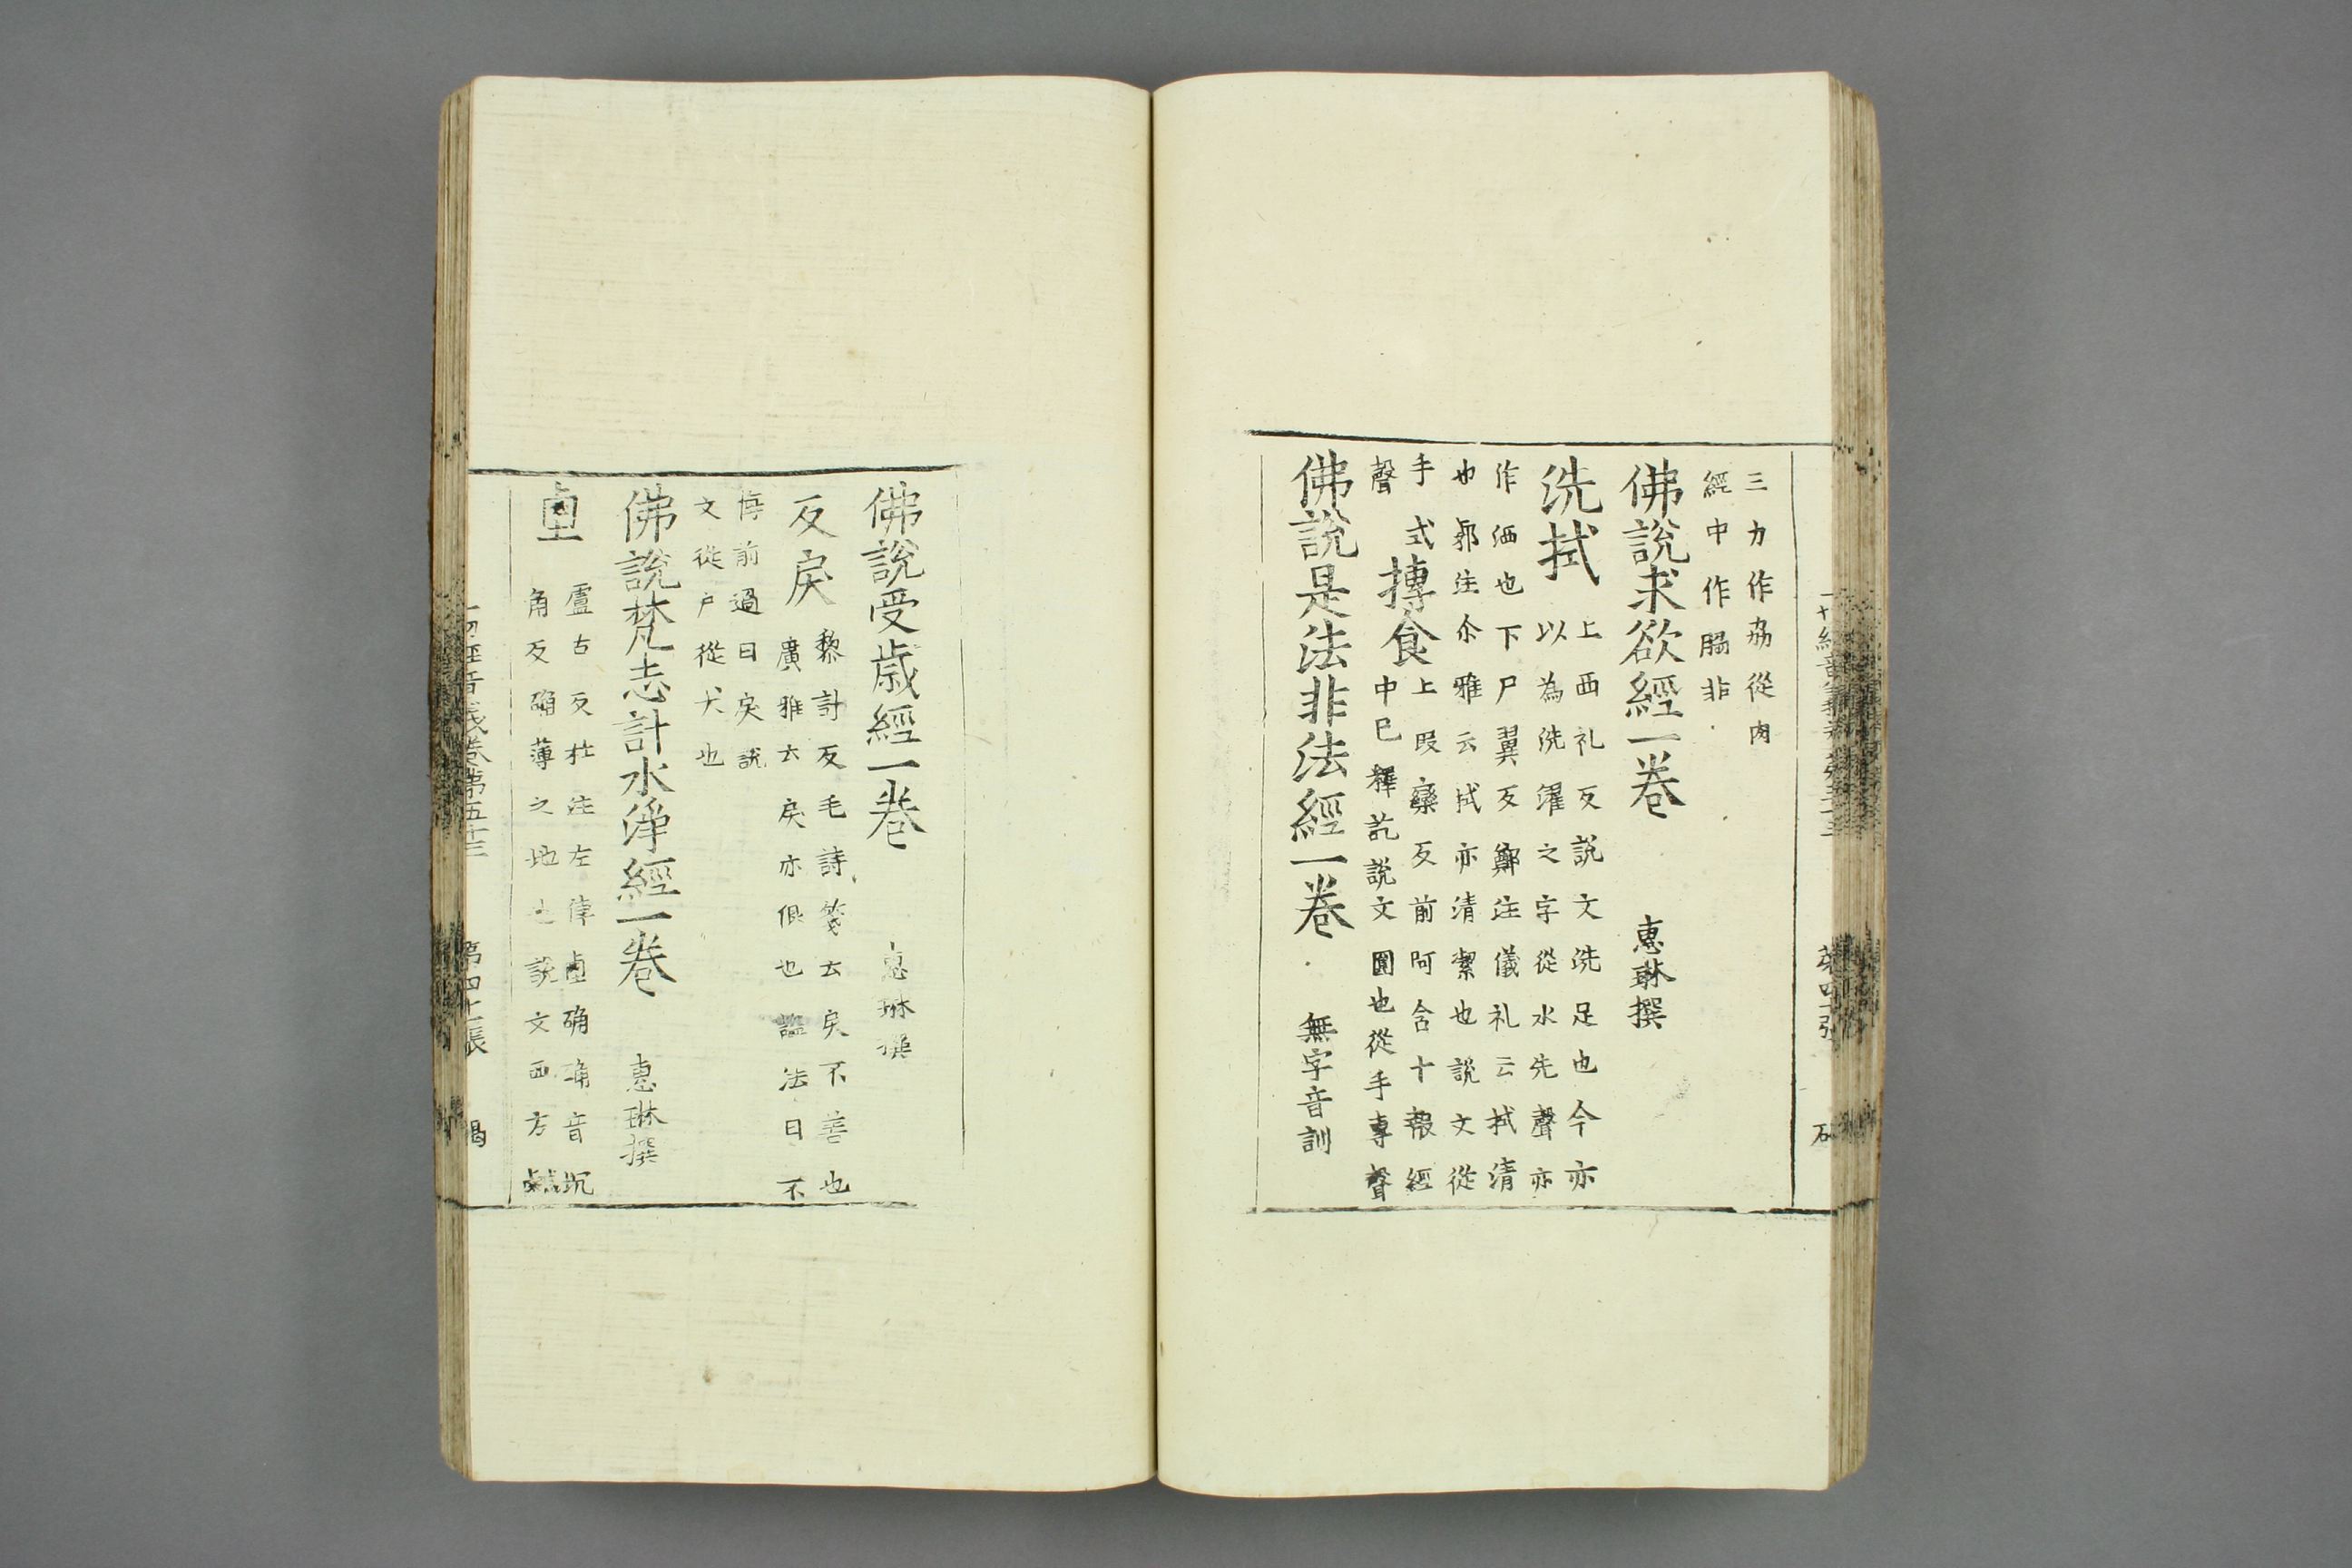 三力作劦從肉
經中作脇非
佛說求欲經一卷　惠琳撰
洗拭　上西礼反說文洗足也今亦
以為洗濯之字從水先聲亦
作洒也下尸翼反鄭注儀礼云拭清
也郭注尒雅云拭亦清潔也說文從
手式
聲
摶食　上叚欒反前阿含十報經
中已釋訖說文圜也從手專聲
佛說是法非法經一卷　無字音訓
佛說受歲經一卷　惠琳撰
反戾　黎計反毛詩箋云戾不善也
廣雅云戾亦佷也謚法曰不
悔前過曰戾說
文從戶從犬也
佛說梵志計水淨經一卷　惠琳撰
鹵土　盧古反杜注左傳鹵确确音
角反确薄之地也說文西方鹹
一切經音義卷第五十三　第四十一張